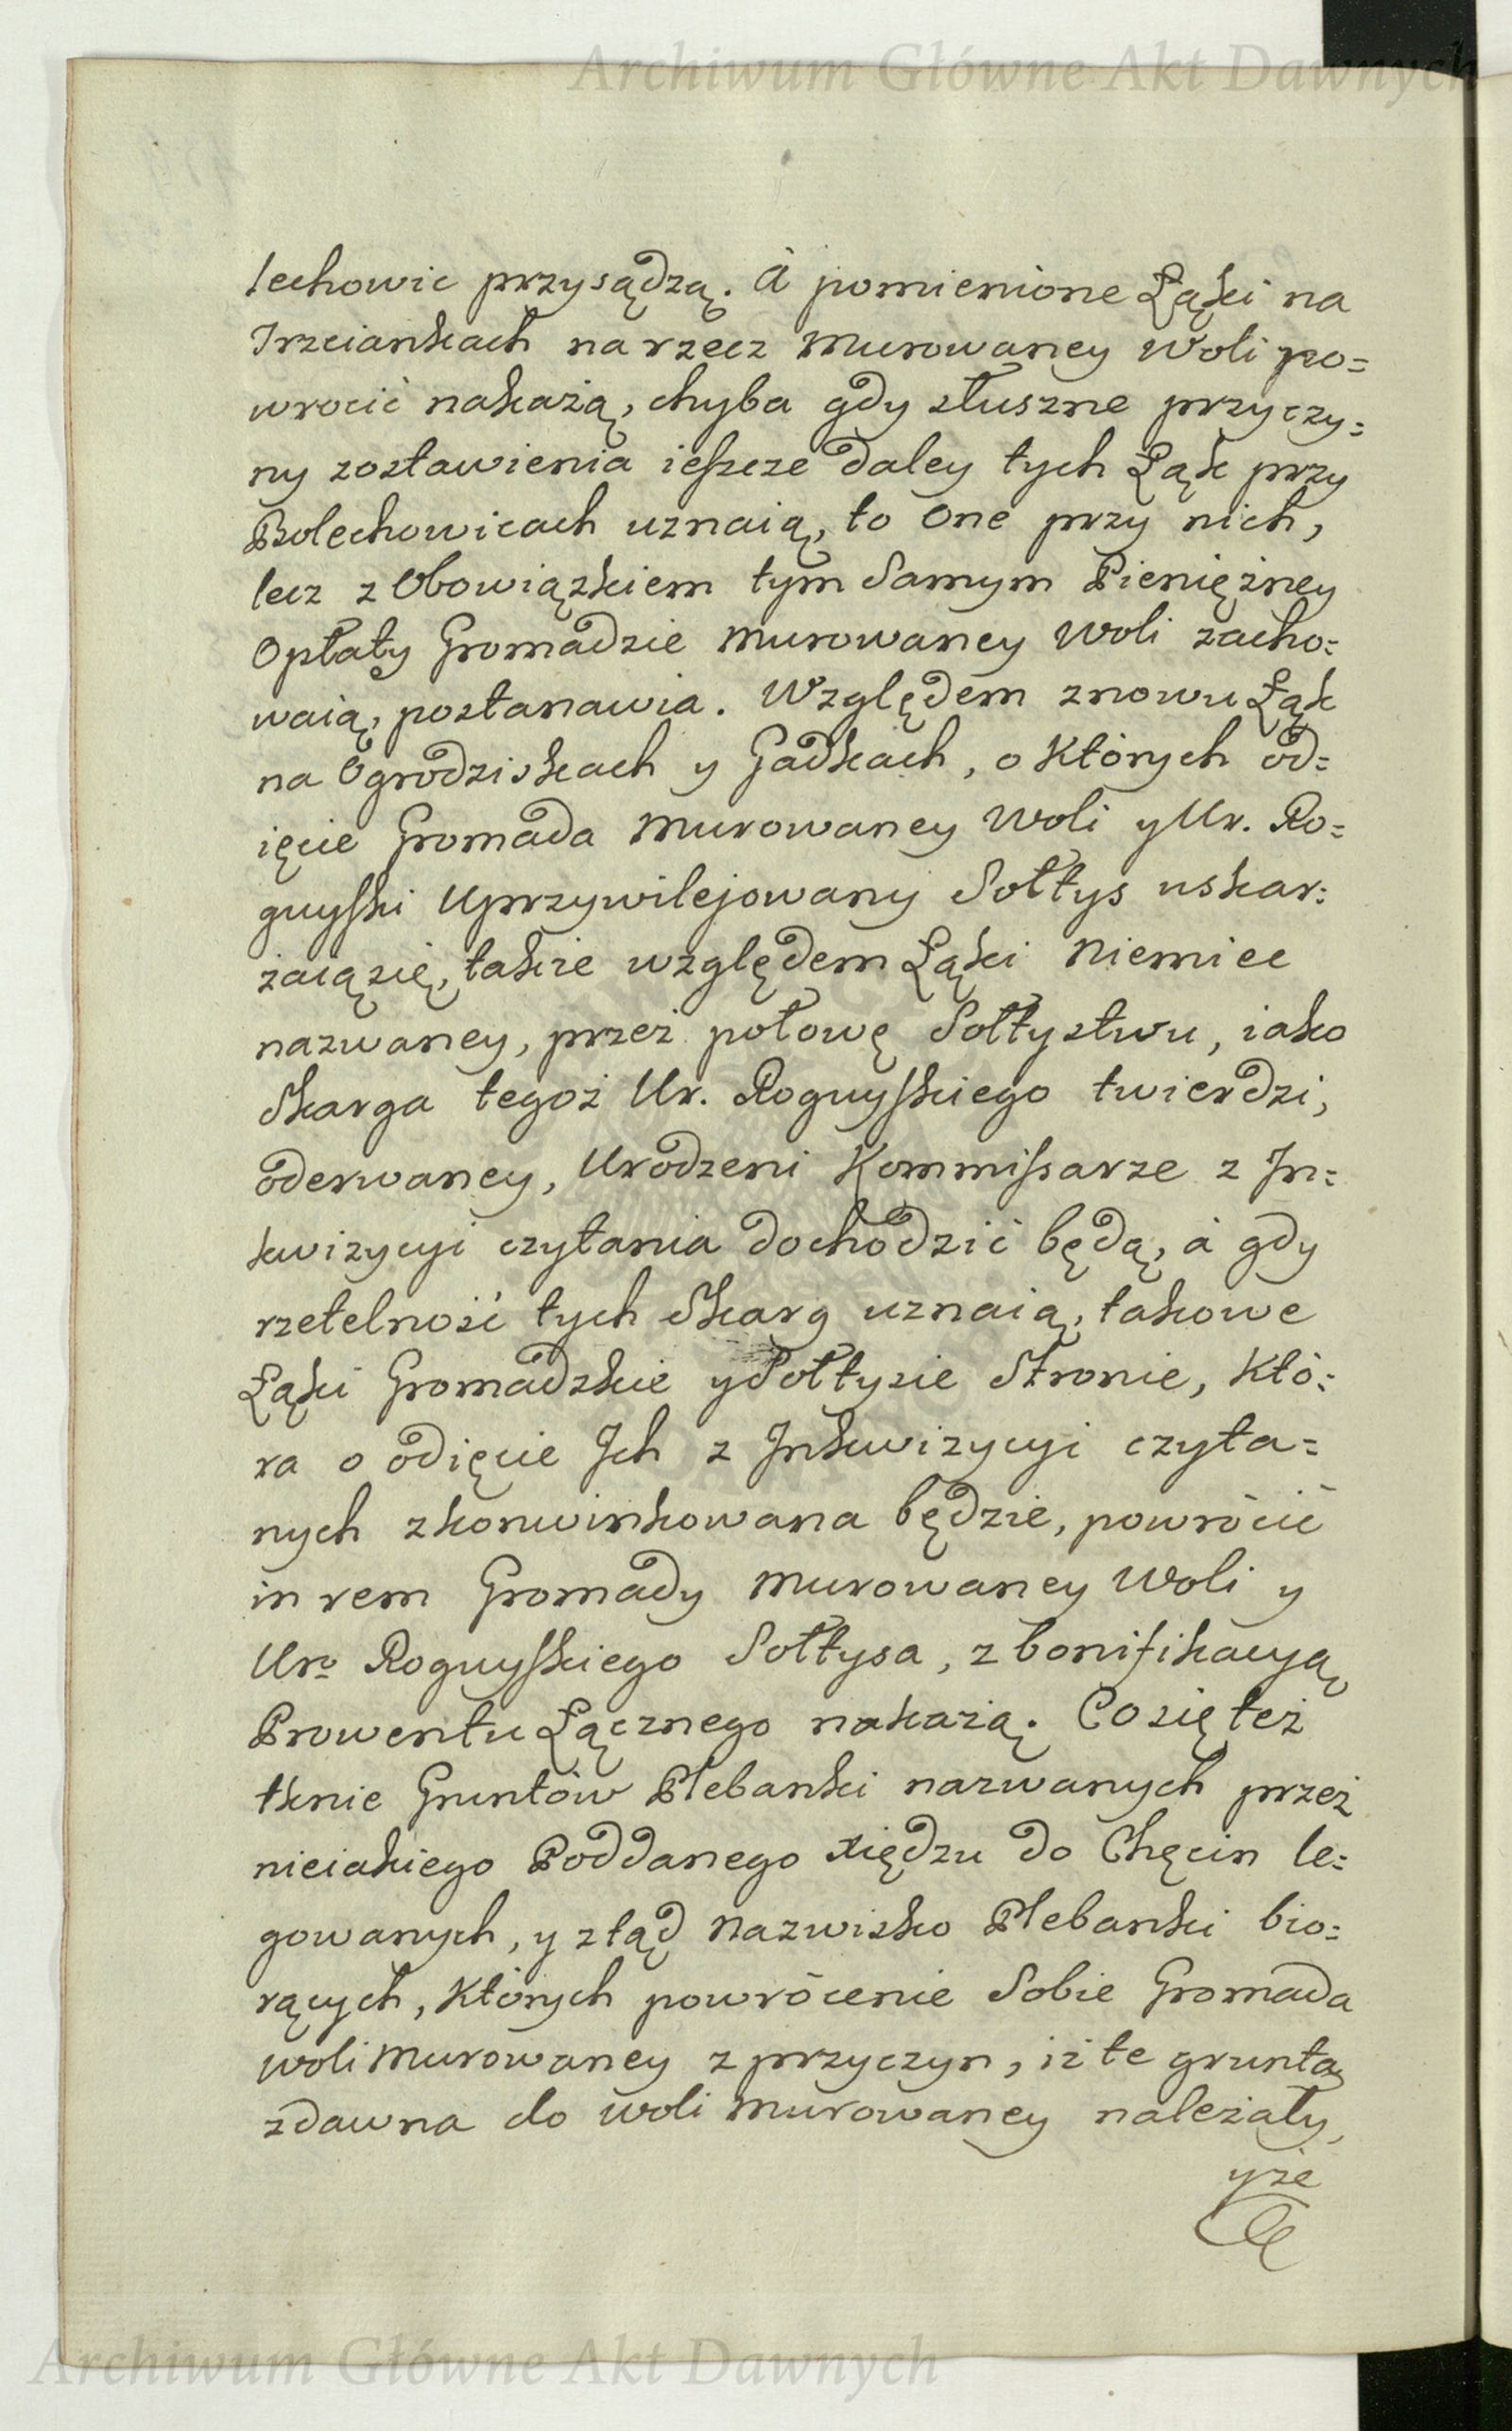 Archiwum Główne Akt Dawnych
lechowic przysądzą. à pomienione Łąki na
Trzciankach na rzecz Murowaney Woli po=
wrocić nakażą, chyba gdy słuszne przyczy=
ny zostawienia ieszcze daley tych Łąk przy
Bolechowicach uznaią, to One przy nich,
lecz z Obowiązkiem tym Samym Pieniężney
Opłaty Gromadzie Murowaney Woli zacho=
waią, postanawia. Względem znowu Łąk
na Ogrodziskach y Gadkach, o których od=
ięcie Gromada Murowaney Woli y Ur. Ro=
guyski Uprzywilejowany Sołtys uskar=
żaią się, także względem Łąki Niemiec
nazwaney, przez połowę Sołtystwu, iako
Skarga tegoż Ur. Roguyskiego twierdzi,
oderwaney, Urodzeni Kommissarze z In=
kwizycyi czytania dochodzić będą, à gdy
rzetelność tych Skarg uznaią, takowe
Łąki Gromadzkie y Sołtysie Stronie, któ=
ra o odięcie Ich z Inkwizycyi czyta=
nych zkonwinkowana będzie, powrócić
in rem Gromady Murowaney Woli y
Uro Roguyskiego Sołtysa, z bonifikacyą
Prowentu Łącznego nakażą. Co się też
tknie Gruntów Plebanki nazwanych przez
nieiakiego Poddanego xiędzu do Chęcin le=
gowanych, y ztąd Nazwisko Plebanki bio=
rących, których powrócenie Sobie Gromada
Woli Murowaney z przyczyn, iż te grunta
zdawna do Woli Murowaney należały,
yże
Archiwum Główne Akt Dawnych